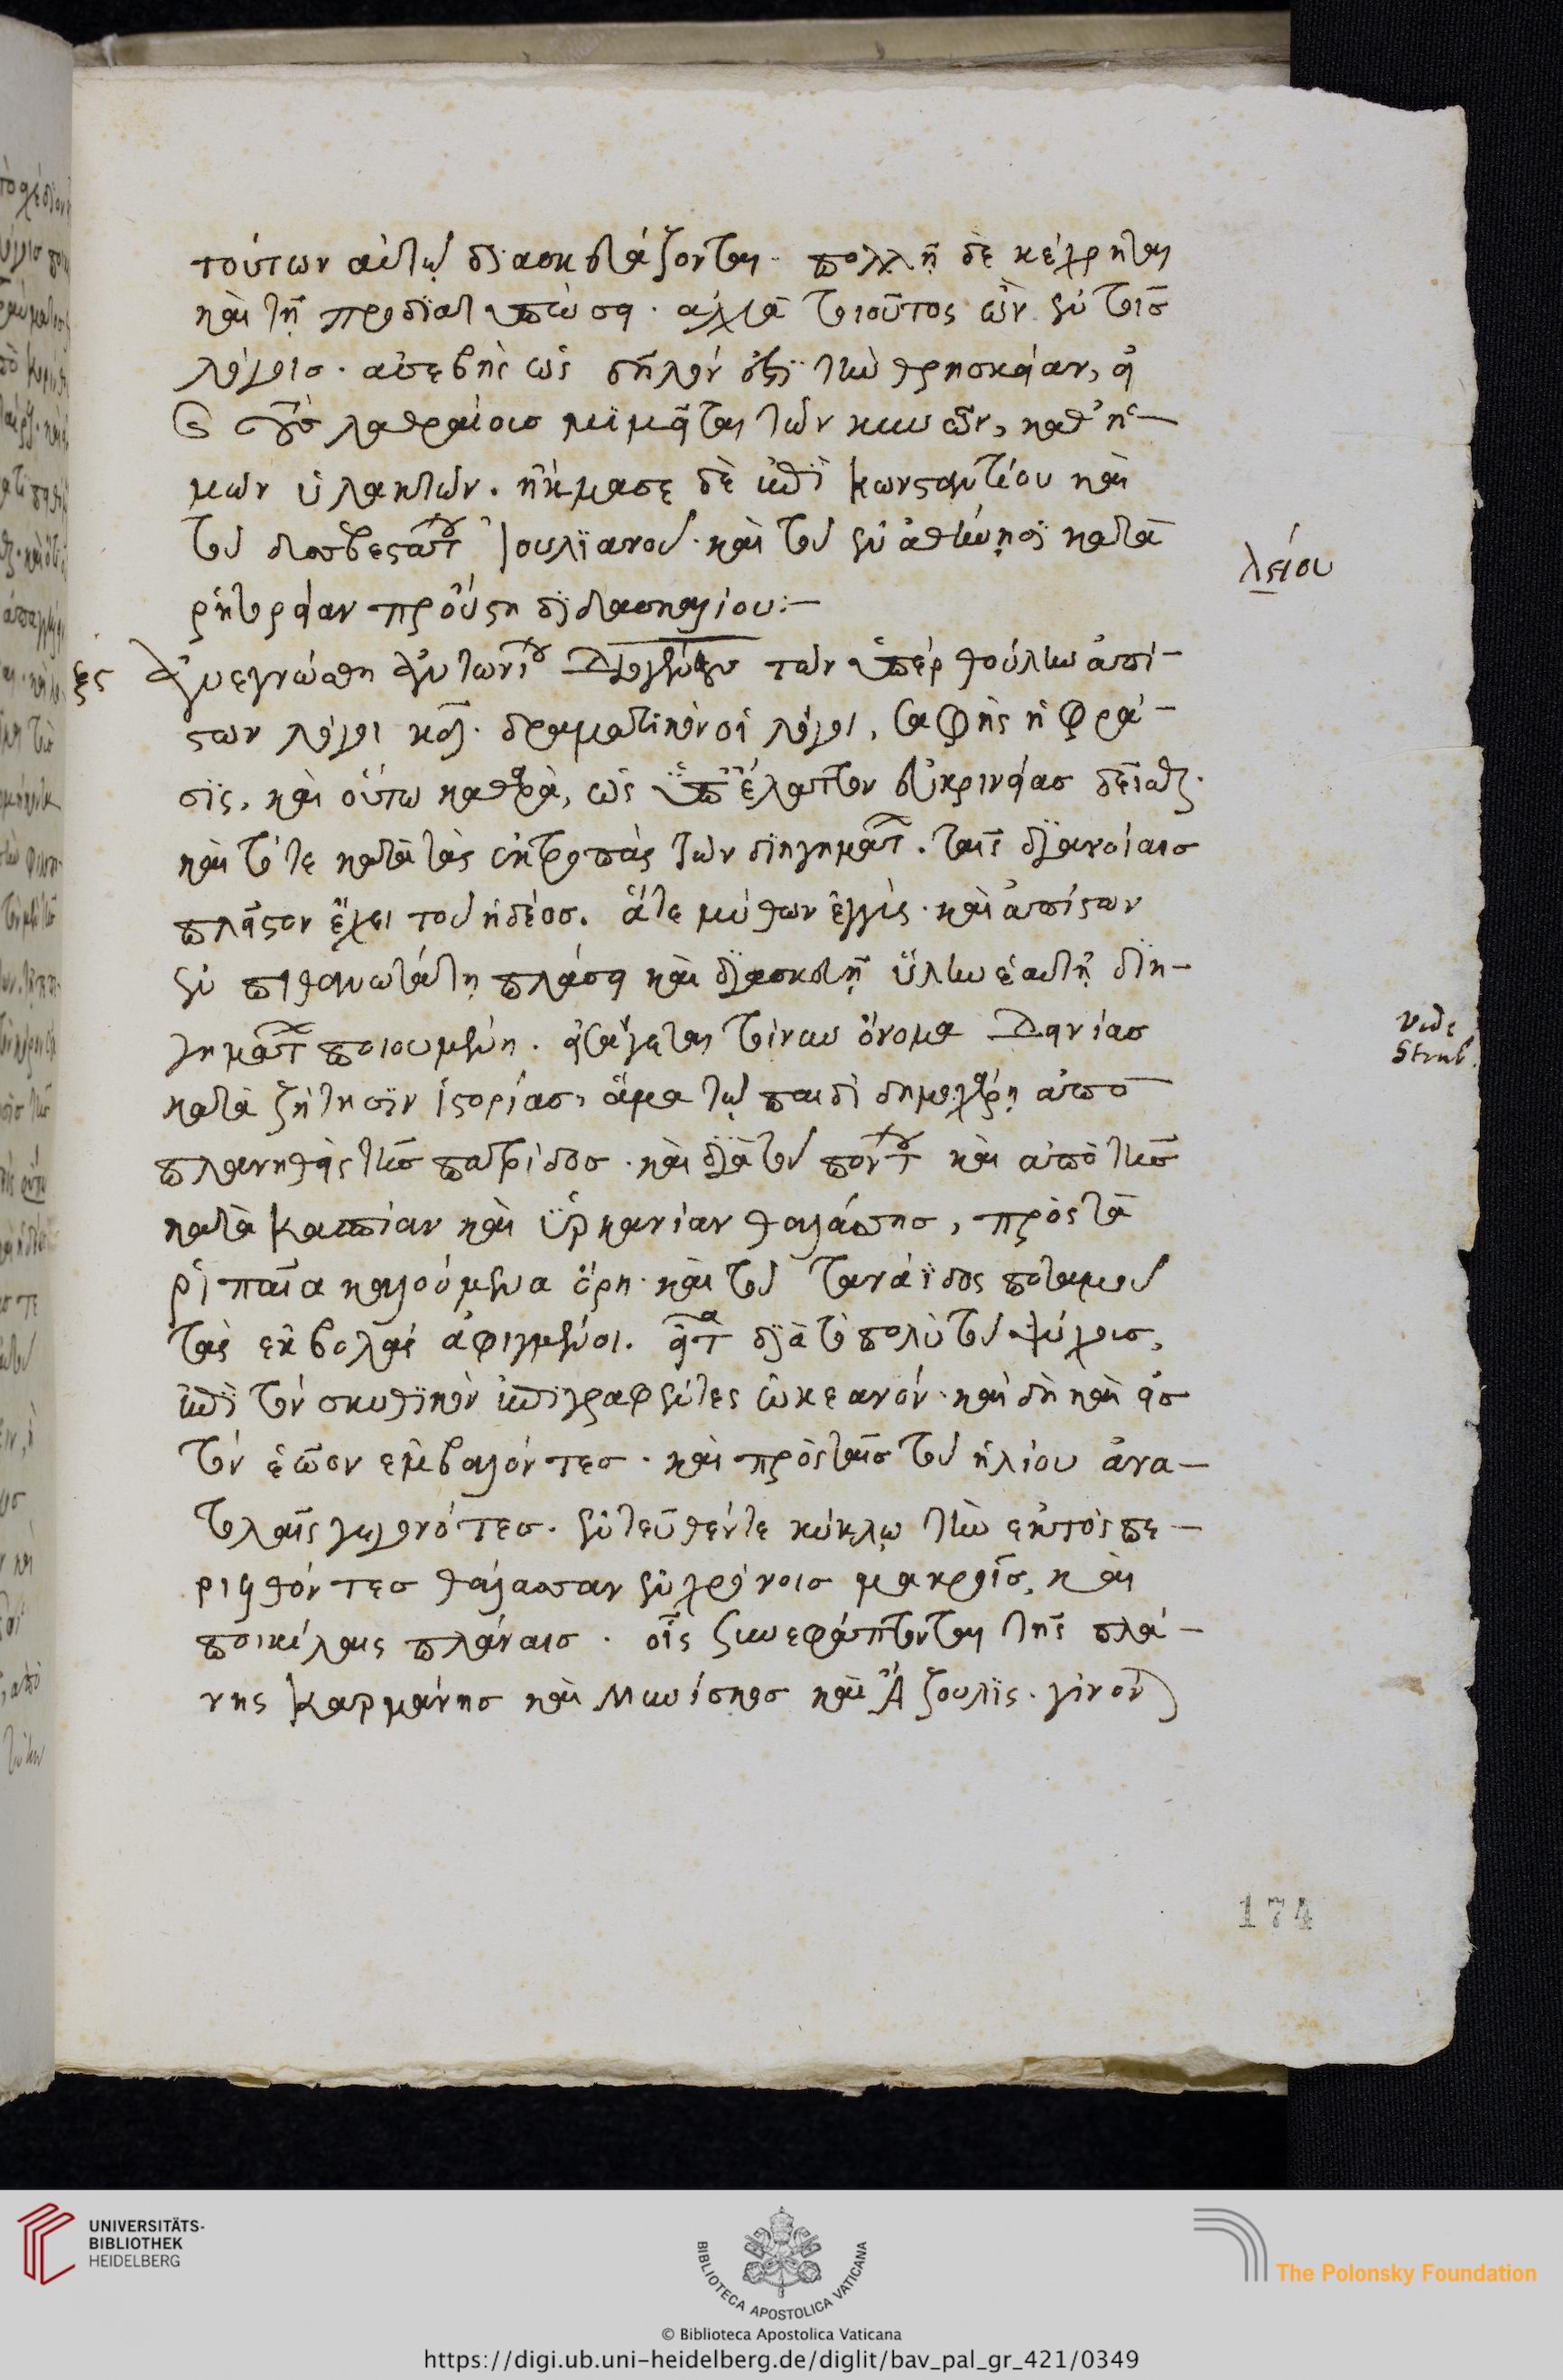 τούτων αὐτῷ διασκευάζονται· πολλῇ δὲ κέχρηται
καὶ τῇ προδιατυπώσει· ἀλλὰ τοιοῦτος ὢν ἐν τοῖς
λόγοις· ἀσεβὴς ὡς δῆλόν ἐστι τὴν θρησκείαν, εἰ
καὶ τοὺς λαθραίους μιμεῖται τῶν κυνῶν, καθ' ἡ-
μῶν ὑλακτῶν. ἤκμασε δὲ ἐπὶ Κωνσταντίου καὶ
τοῦ δυσσεβεστάτου Ἰουλιανοῦ· καὶ τοῦ ἐν ἀθήνησι κατὰ
ῥητορείαν προὔστη διδασκαλίου:-
λείου
ξς ἀνεγνώσθη ἀντωνίου Διογένους τῶν ὑπὲρ θούλην ἀπί-
στων λόγοι κδ. δραματικὸν οἱ λόγοι, σαφὴς ἡ φρά-
σις, καὶ οὕτω καθαρὰ, ὡς ἐπ' ἔλαττον εὐκρινείας δεῖσθαι·
καὶ τότε κατὰ τὰς ἐκτροπὰς τῶν διηγημάτων. ταῖς διανοίαις
πλεῖστον ἔχει τοῦ ἡδέος. ἅτε μύθων ἐγγὺς· καὶ ἀπίστων
ἐν πιθανωτάτῃ πλάσει καὶ διασκευῇ ὕλην ἑαυτῇ διη-
γημάτων ποιουμένη. εἰσάγεται τοίνυν ὄνομα Δεινίας
vide
Strab.
κατὰ ζήτησιν ἱστορίας, ἅμα τῷ παιδὶ δημοχάρῃ ἀπο
πλανηθεὶς τῆς πατρίδος· καὶ διὰ τοῦ πόντου καὶ ἀπὸ τῆς
κατὰ Κασπίαν καὶ ὑρκανίαν θαλάσσης, πρὸς τὰ
ῥιπαῖα καλούμενα ὄρη· καὶ τοῦ τανάϊδος ποταμοῦ
τὰς ἐκβολὰς ἀφιγμένοι. εἶτα διὰ τὸ πολὺ τοῦ ψύχους,
ἐπὶ τὸν σκυθικὸν ἐπιγραφέντες ὠκεανόν· καὶ δὴ καὶ εἰς
τὸν ἑῶον ἐμβαλόντες· καὶ πρὸς ταῖς τοῦ ἡλίου ἀνα-
τολαῖς γεγονότες· ἐντεῦθέν τε κύκλῳ τὴν ἐκτὸς πε-
ριελθόντες θάλασσαν ἐν χρόνοις μακροῖς, καὶ
ποικίλαις πλάναις· οἷς συνεφάπτονται τῆς πλά-
νης Καρμάνης καὶ Μηνίσκος καὶ Ἀζουλις. γίνον)
174
UNIVERSITÄTS-
BIBLIOTHEK
HEIDELBERG
BIBLIOTECA APOSTOLICA VATICANA
The Polonsky Foundation
© Biblioteca Apostolica Vaticana
https://digi.ub.uni-heidelberg.de/diglit/bav_pal_gr_421/0349